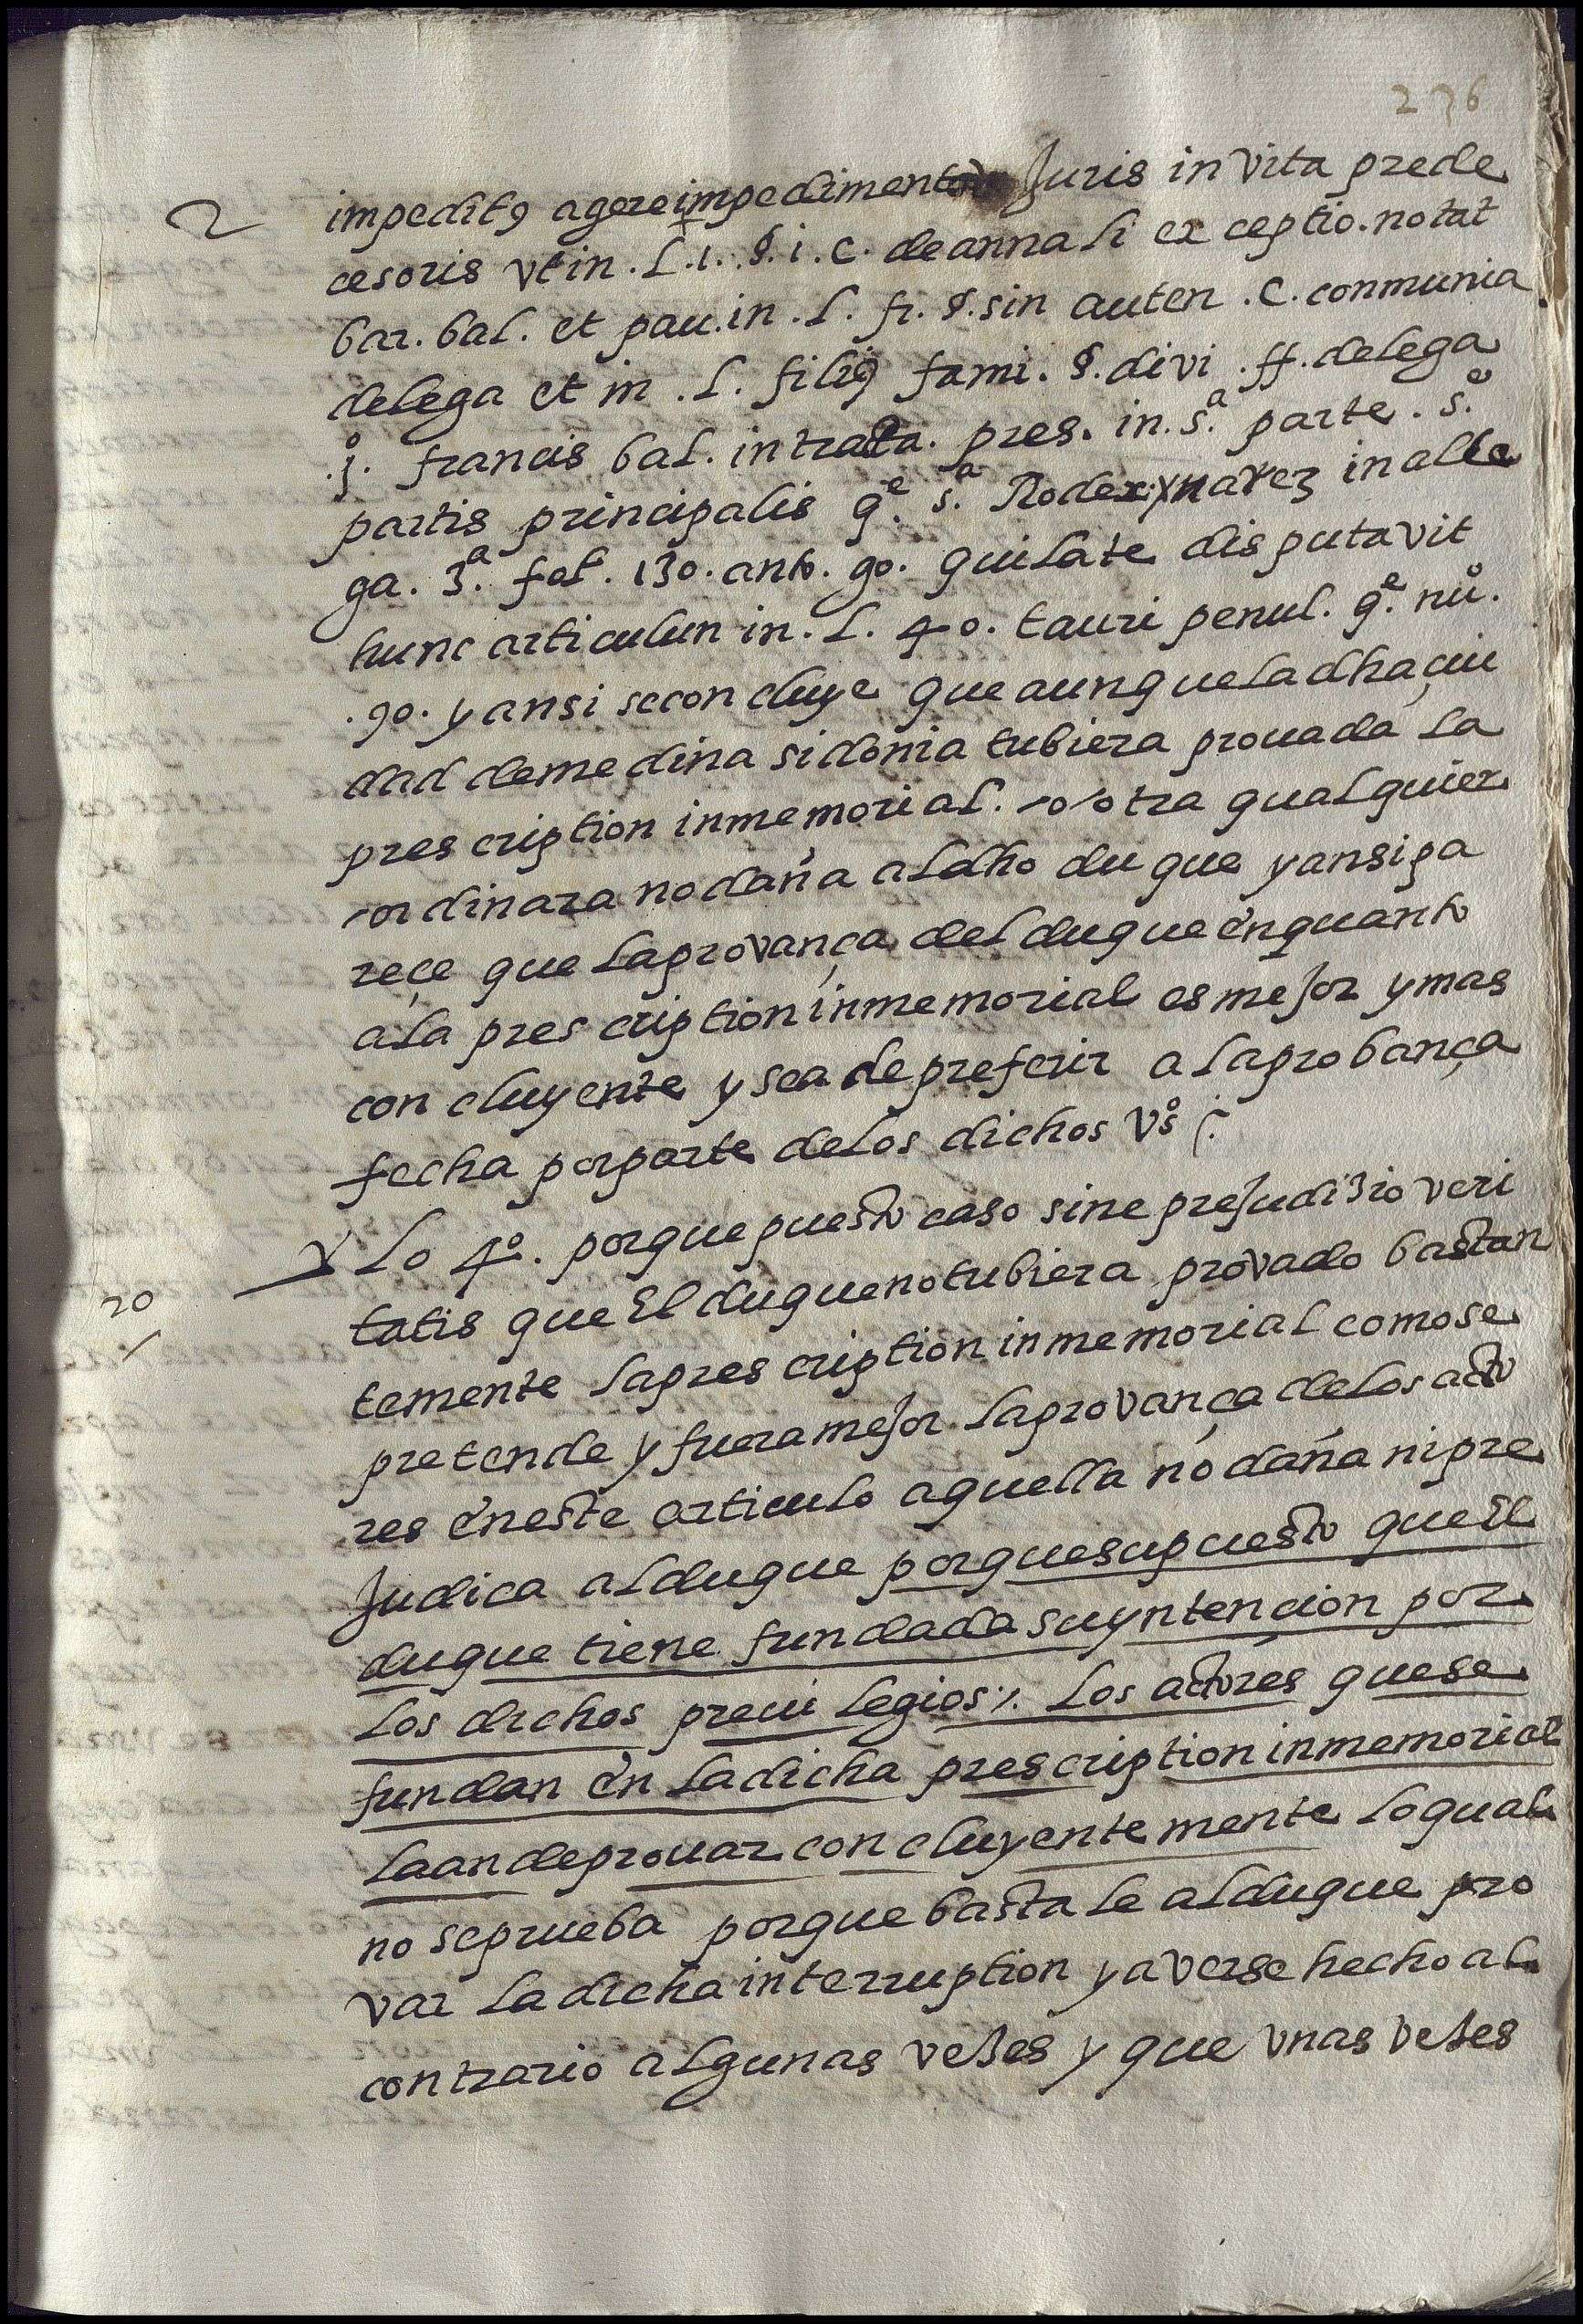 236
2
impeditꝯ agere impedimento Juris in vita prede
cesoris vt in . L. 1. §. i. c. de annali exceptio. notat
bar. bal. et pau. in . L. fi. §. sin auten . C. conmunia
delega et in . L. filiꝯ fami. §. divi . ff. delega
.j.º francis bal. in tracta. pres. in. s.ª parte . s.e
partis principalis q.e s.ª Roder xuarez in alle
ga. 3.ª fol. 130. anto. go. qui late disputavit
hunc articulun in . L. 40. tauri penul. q.e nu.º
.90. y ansi se concluye que aunque la dha çiu
dad de medina sidonia tubiera prouada la
prescription inmemorial. o otra qualquier
ordinara no daña al dho duque y ansi pa
reçe que la provança del duque en quanto
a la prescription inmemorial es mejor y mas
concluyente y sea de preferir a la probança
fecha por parte de los dichos vºs
20
Lo 4º. porque puesto caso sine preJudizio veri
tatis que El duque no tubiera provado bastan
temente la prescription inmemorial como se
pretende y fuera meJor la provança de los acto
res en este articulo aquella no daña ni pre
Judica al duque porque supuesto que El
duque tiene fundada su yntençion por
los dichos preui legios /. Los actores que se
fundan en la dicha prescription inmemorial
la an de prouar concluyentemente lo qual
no se prueba porque bastale al duque pro
var la dicha interruption y averse hecho al
contrario algunas vezes y que vnas vezes